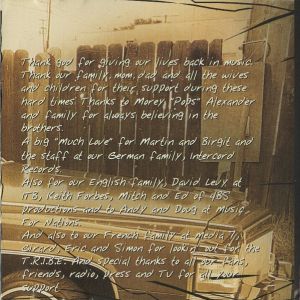 Thank god for giving our lives back in music.
Thank our family, mom, dad, and all the wives
and children for their support during these
hard times. Thanks to Morey "Pops" Alexander
and family for always believing in the
brothers.
A big "much Love" for Martin and Birgit and
the staff at our German family, Intercord
Records.
Also for our English family, David Levy at
ITB, Keith Forbes, Mitch and Ed of 4BS
productions and to Andy and Doug at Music
For Nations.
And also to our French family at media 7,
Eric and Simon for lookin' out for the
T.R.I.B.E. And special thanks to all our fans,
friends, radio, press and TV for all your
support